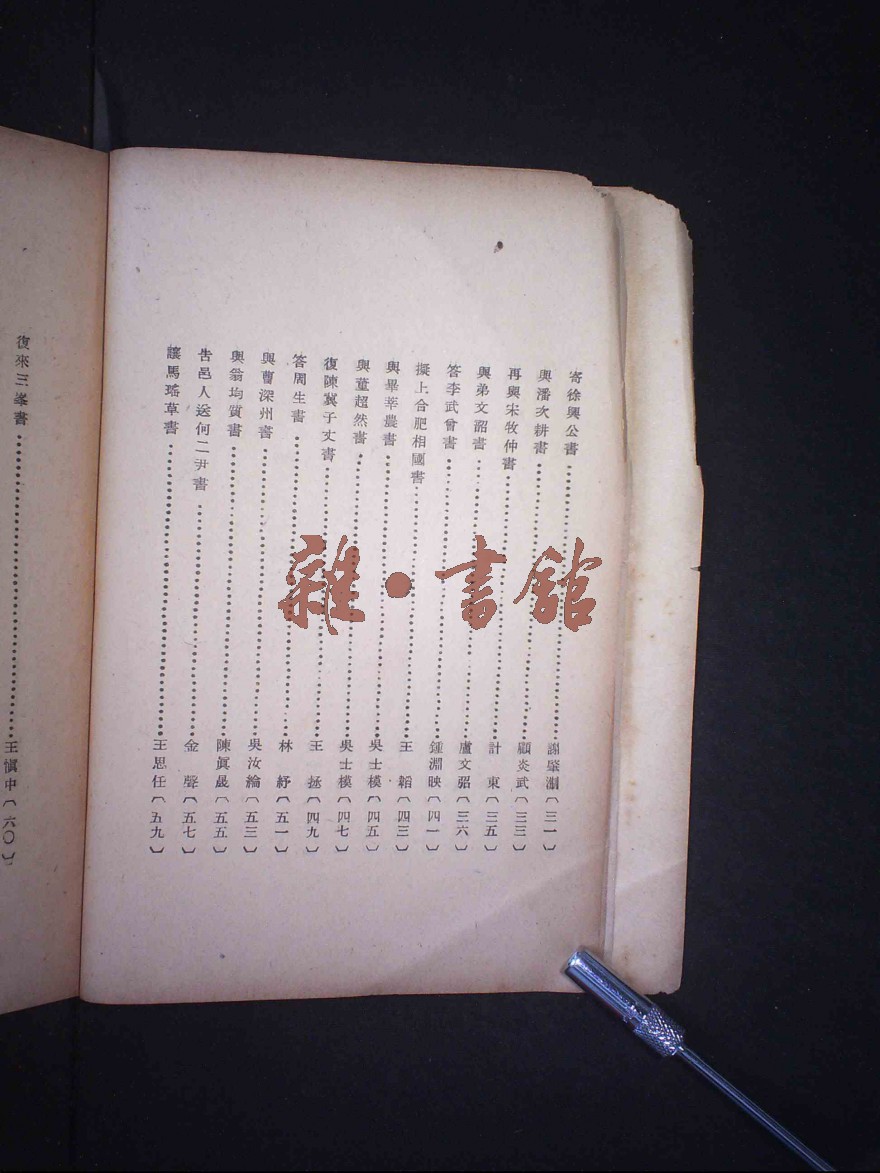 寄徐興公書……謝肇淛〔三一〕
與潘次耕書……顧炎武〔三三〕
再與宋牧仲書……計東〔三五〕
與弟文韶書……盧文弨〔三六〕
答李武曾書……鍾淵映〔四一〕
擬上合肥相國書……王韜〔四三〕
與畢莘農書……吳士模〔四五〕
與董超然書……吳士模〔四七〕
復陳冀子丈書……王拯〔四九〕
答周生書……林紓〔五一〕
與曹深州書……吳汝綸〔五三〕
與翁均質書……陳眞晟〔五五〕
告邑人送何二尹書……金聲〔五七〕
讓馬瑤草書……王思任〔五九〕
復來三峯書……王愼中〔六〇〕
雜·書館